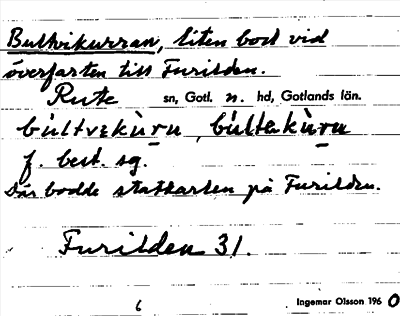 Bultvikurran, liten bod vid
överfarten till Furilden.
Rute sn, Gotl. n. hd, Gotlands län.
bùltvɛkùru, bùltɛkùru
f. best. sg.
Där bodde statkarlen på Furilden.
Furilden 31.
6 Ingemar Olsson 1960